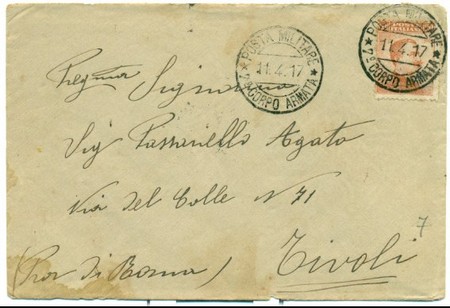 POSTA MILITARE
11.4.17
7º CORPO ARMATA
POSTA MILITARE
11.4.17
7º CORPO ARMATA
Preg.ma Signora
Sig Passanello Agata
Via del Colle N 41
Tivoli
(Prov di Roma)
7